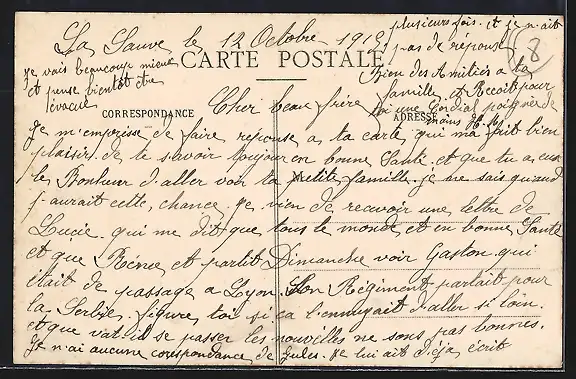 La Sauve le 12 Octobre 191
CARTE POSTALE
CORRESPONDANCE
ADRESSE
8
Cher beau frère
Je m'emprèsse de faire réponse a ta carte qui ma fait bien
plaisir de te savoir toujour en bonne Santé et que tu a eux
le Bonheur d'aller voir ta petite famille. je ne sais quand
j'aurait cette, chance. je vien de recevoir une lettre de
Lucie qui me dit que tous le monde et en bonne Santé
et que Rénée et partit Dimanche voir Gaston qui
était de passage a Lyon. Son Régiment partait pour
la Serbie. figure toi si ça l'ennuyait d'aller si loin.
et que vat-il se passer les nouvelles ne sons pas bonnes.
Je n'ai aucune corespondance de Jules. Je lui ait déja écrit
plusieurs fois. et je n'ait
pas de réponse
Bien des Amitiés a ta
famille et Recoit pour
toi une Cordial poignée de
mains
Je vais beaucoup mieux
et pense bientôt être
évacué